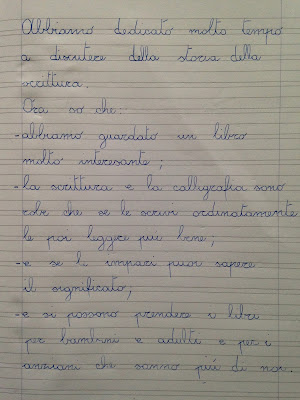 Abbiamo dedicato molto tempo
a discutere della storia della
scrittura.
Ora so che:
-abbiamo guardato un libro
molto interesante;
-la scrittura e la calligrafia sono
robe che se le scrivi ordinatamente
le poi leggere più bene;
-e se li impari puoi sapere
il significato;
-e si possono prendere i libri
per bambini e adulti e per i
anziani che sanno più di noi.